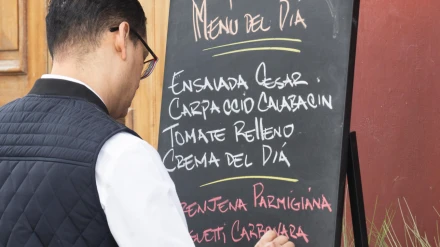 Menú del Día
Ensalada Cesar
Carpaccio Calabacin
Tomate Relleno
Crema del Día
Parmigiana
Carbonara